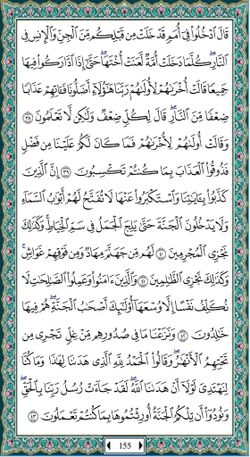 قَالَ ٱدْخُلُوا۟ فِىٓ أُمَمٍ قَدْ خَلَتْ مِن قَبْلِكُم مِّنَ ٱلْجِنِّ وَٱلْإِنسِ فِى
ٱلنَّارِ ۖ كُلَّمَا دَخَلَتْ أُمَّةٌ لَّعَنَتْ أُخْتَهَا ۖ حَتَّىٰٓ إِذَا ٱدَّارَكُوا۟ فِيهَا
جَمِيعًا قَالَتْ أُخْرَىٰهُمْ لِأُولَىٰهُمْ رَبَّنَا هَـٰٓؤُلَآءِ أَضَلُّونَا فَـَٔاتِهِمْ عَذَابًا
ضِعْفًا مِّنَ ٱلنَّارِ ۖ قَالَ لِكُلٍّ ضِعْفٌ وَلَـٰكِن لَّا تَعْلَمُونَ ٣٨
وَقَالَتْ أُولَىٰهُمْ لِأُخْرَىٰهُمْ فَمَا كَانَ لَكُمْ عَلَيْنَا مِن فَضْلٍ
فَذُوقُوا۟ ٱلْعَذَابَ بِمَا كُنتُمْ تَكْسِبُونَ ٣٩ إِنَّ ٱلَّذِينَ
كَذَّبُوا۟ بِـَٔايَـٰتِنَا وَٱسْتَكْبَرُوا۟ عَنْهَا لَا تُفَتَّحُ لَهُمْ أَبْوَٰبُ ٱلسَّمَآءِ
وَلَا يَدْخُلُونَ ٱلْجَنَّةَ حَتَّىٰ يَلِجَ ٱلْجَمَلُ فِى سَمِّ ٱلْخِيَاطِ ۚ وَكَذَٰلِكَ
نَجْزِى ٱلْمُجْرِمِينَ ٤٠ لَهُم مِّن جَهَنَّمَ مِهَادٌ وَمِن فَوْقِهِمْ غَوَاشٍ ۚ
وَكَذَٰلِكَ نَجْزِى ٱلظَّـٰلِمِينَ ٤١ وَٱلَّذِينَ ءَامَنُوا۟ وَعَمِلُوا۟ ٱلصَّـٰلِحَـٰتِ لَا
نُكَلِّفُ نَفْسًا إِلَّا وُسْعَهَآ أُو۟لَـٰٓئِكَ أَصْحَـٰبُ ٱلْجَنَّةِ ۖ هُمْ فِيهَا
خَـٰلِدُونَ ٤٢ وَنَزَعْنَا مَا فِى صُدُورِهِم مِّنْ غِلٍّ تَجْرِى مِن
تَحْتِهِمُ ٱلْأَنْهَـٰرُ ۖ وَقَالُوا۟ ٱلْحَمْدُ لِلَّهِ ٱلَّذِى هَدَىٰنَا لِهَـٰذَا وَمَا كُنَّا
لِنَهْتَدِىَ لَوْلَآ أَنْ هَدَىٰنَا ٱللَّهُ ۖ لَقَدْ جَآءَتْ رُسُلُ رَبِّنَا بِٱلْحَقِّ ۖ
وَنُودُوٓا۟ أَن تِلْكُمُ ٱلْجَنَّةُ أُورِثْتُمُوهَا بِمَا كُنتُمْ تَعْمَلُونَ ٤٣
155